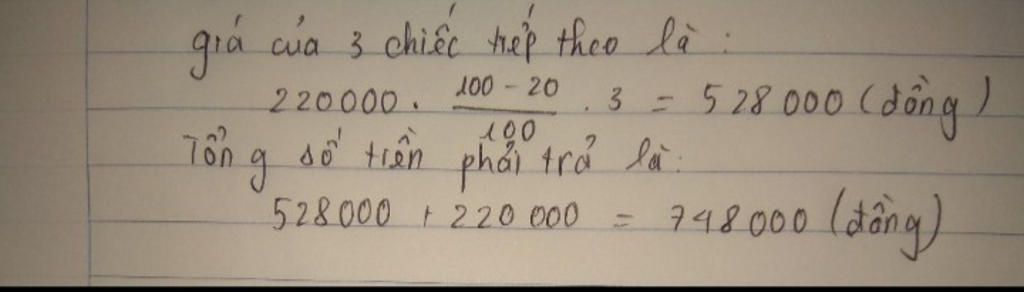 giá của 3 chiếc tiếp theo là :
220000 . \frac{100 - 20}{100} . 3 = 528 000 (đồng)
Tổng số tiền phải trả là :
528000 + 220 000 = 748000 (đồng)